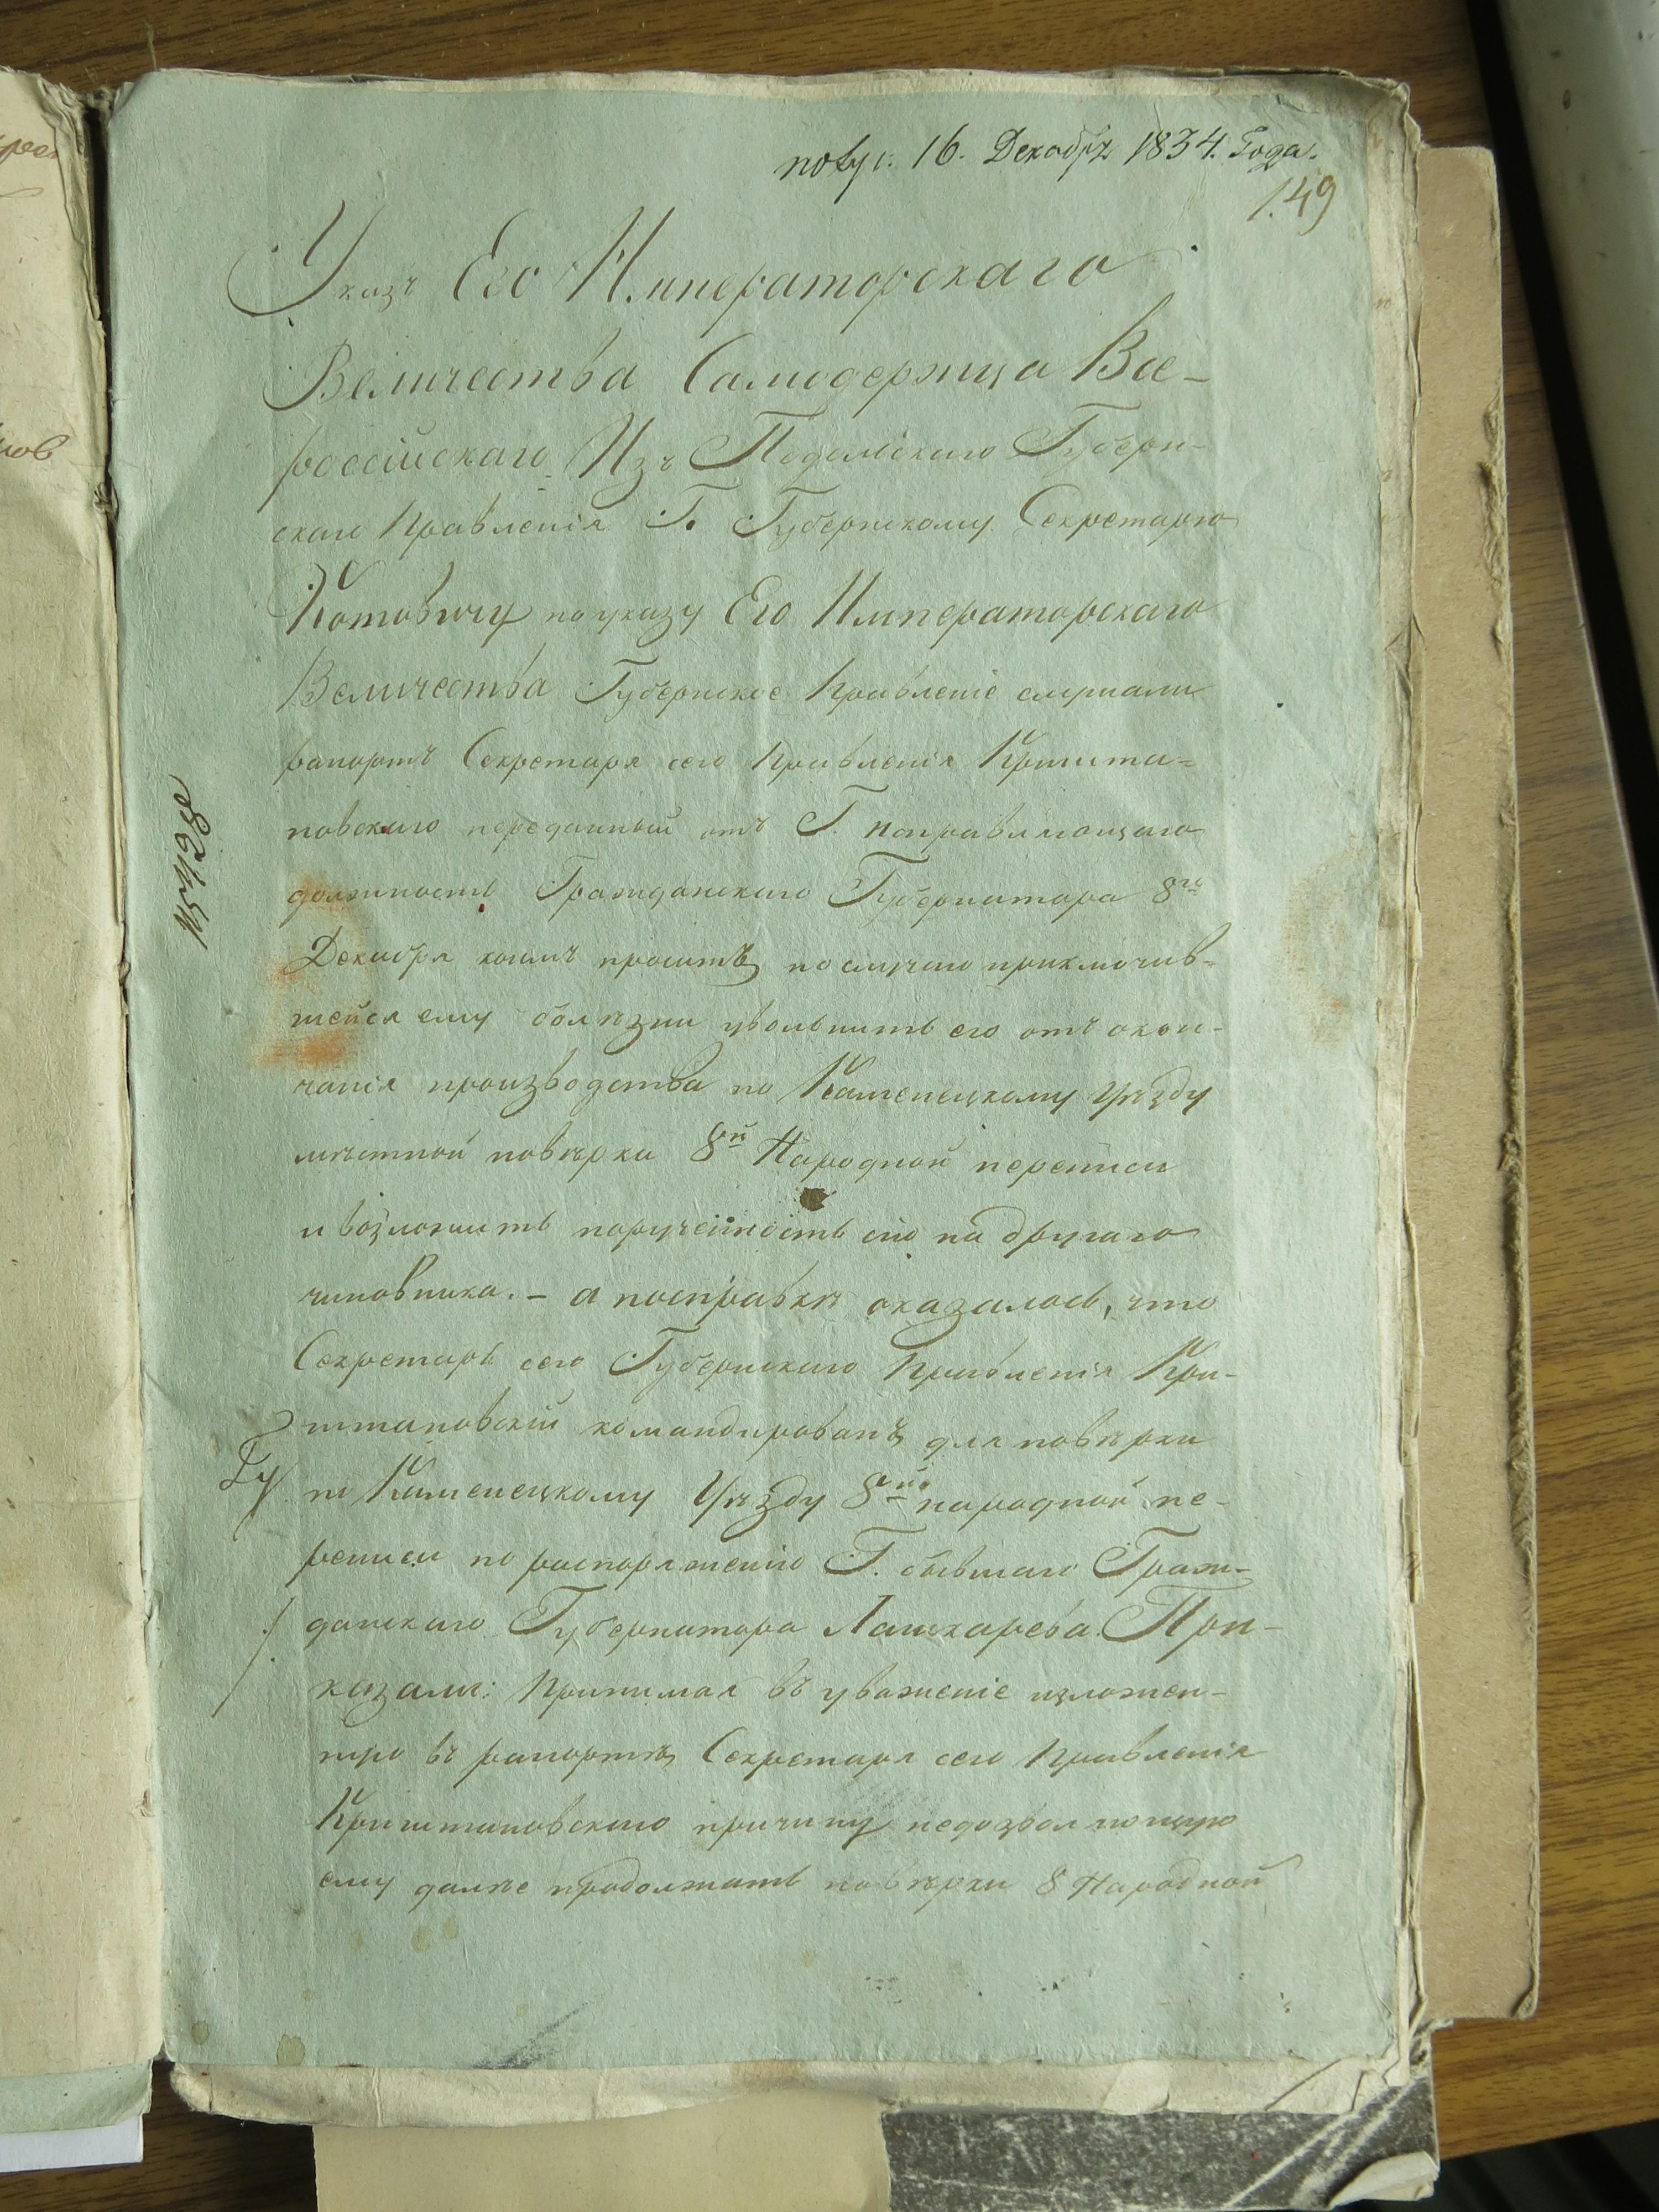 получ. 16. Декабря 1834. Года.
149
Указъ Его Императорскаго
Величества Самодержца Все-
россійскаго Изъ Подольскаго Губерн-
скаго Правленія Г. Губернскому Секретарю
Котовичу по указу Его Императорскаго
Величества Губернское Правленіе слушали
рапортъ Секретаря сего Правленія Кришта-
новскаго переданный отъ Г. исправляющаго
должность Гражданскаго Губернатора 8го
Декабря коимъ проситъ по случаю приключив-
шейся ему болѣзни увольнить его отъ окон-
чанія производства по Каменецкому уѣзду
мѣстной повѣрки 8й Народной переписи
и возложить порученность сію на другаго
чиновника. – а по справкѣ оказалось, что
Секретарь сего Губернскаго Правленія Кри-
штановскій командированъ для повѣрки
по Каменецкому Уѣзду 8й народной пе-
реписи по распоряженію Г. бывшаго Граж-
данскаго Губернатора Лашкарева. При-
казали: Принимая въ уваженіе изложен-
ную въ рапортѣ Секретаря сего Правленія
Криштановскаго причину недозволяющую
ему далѣе продолжать повѣрки 8 Народной